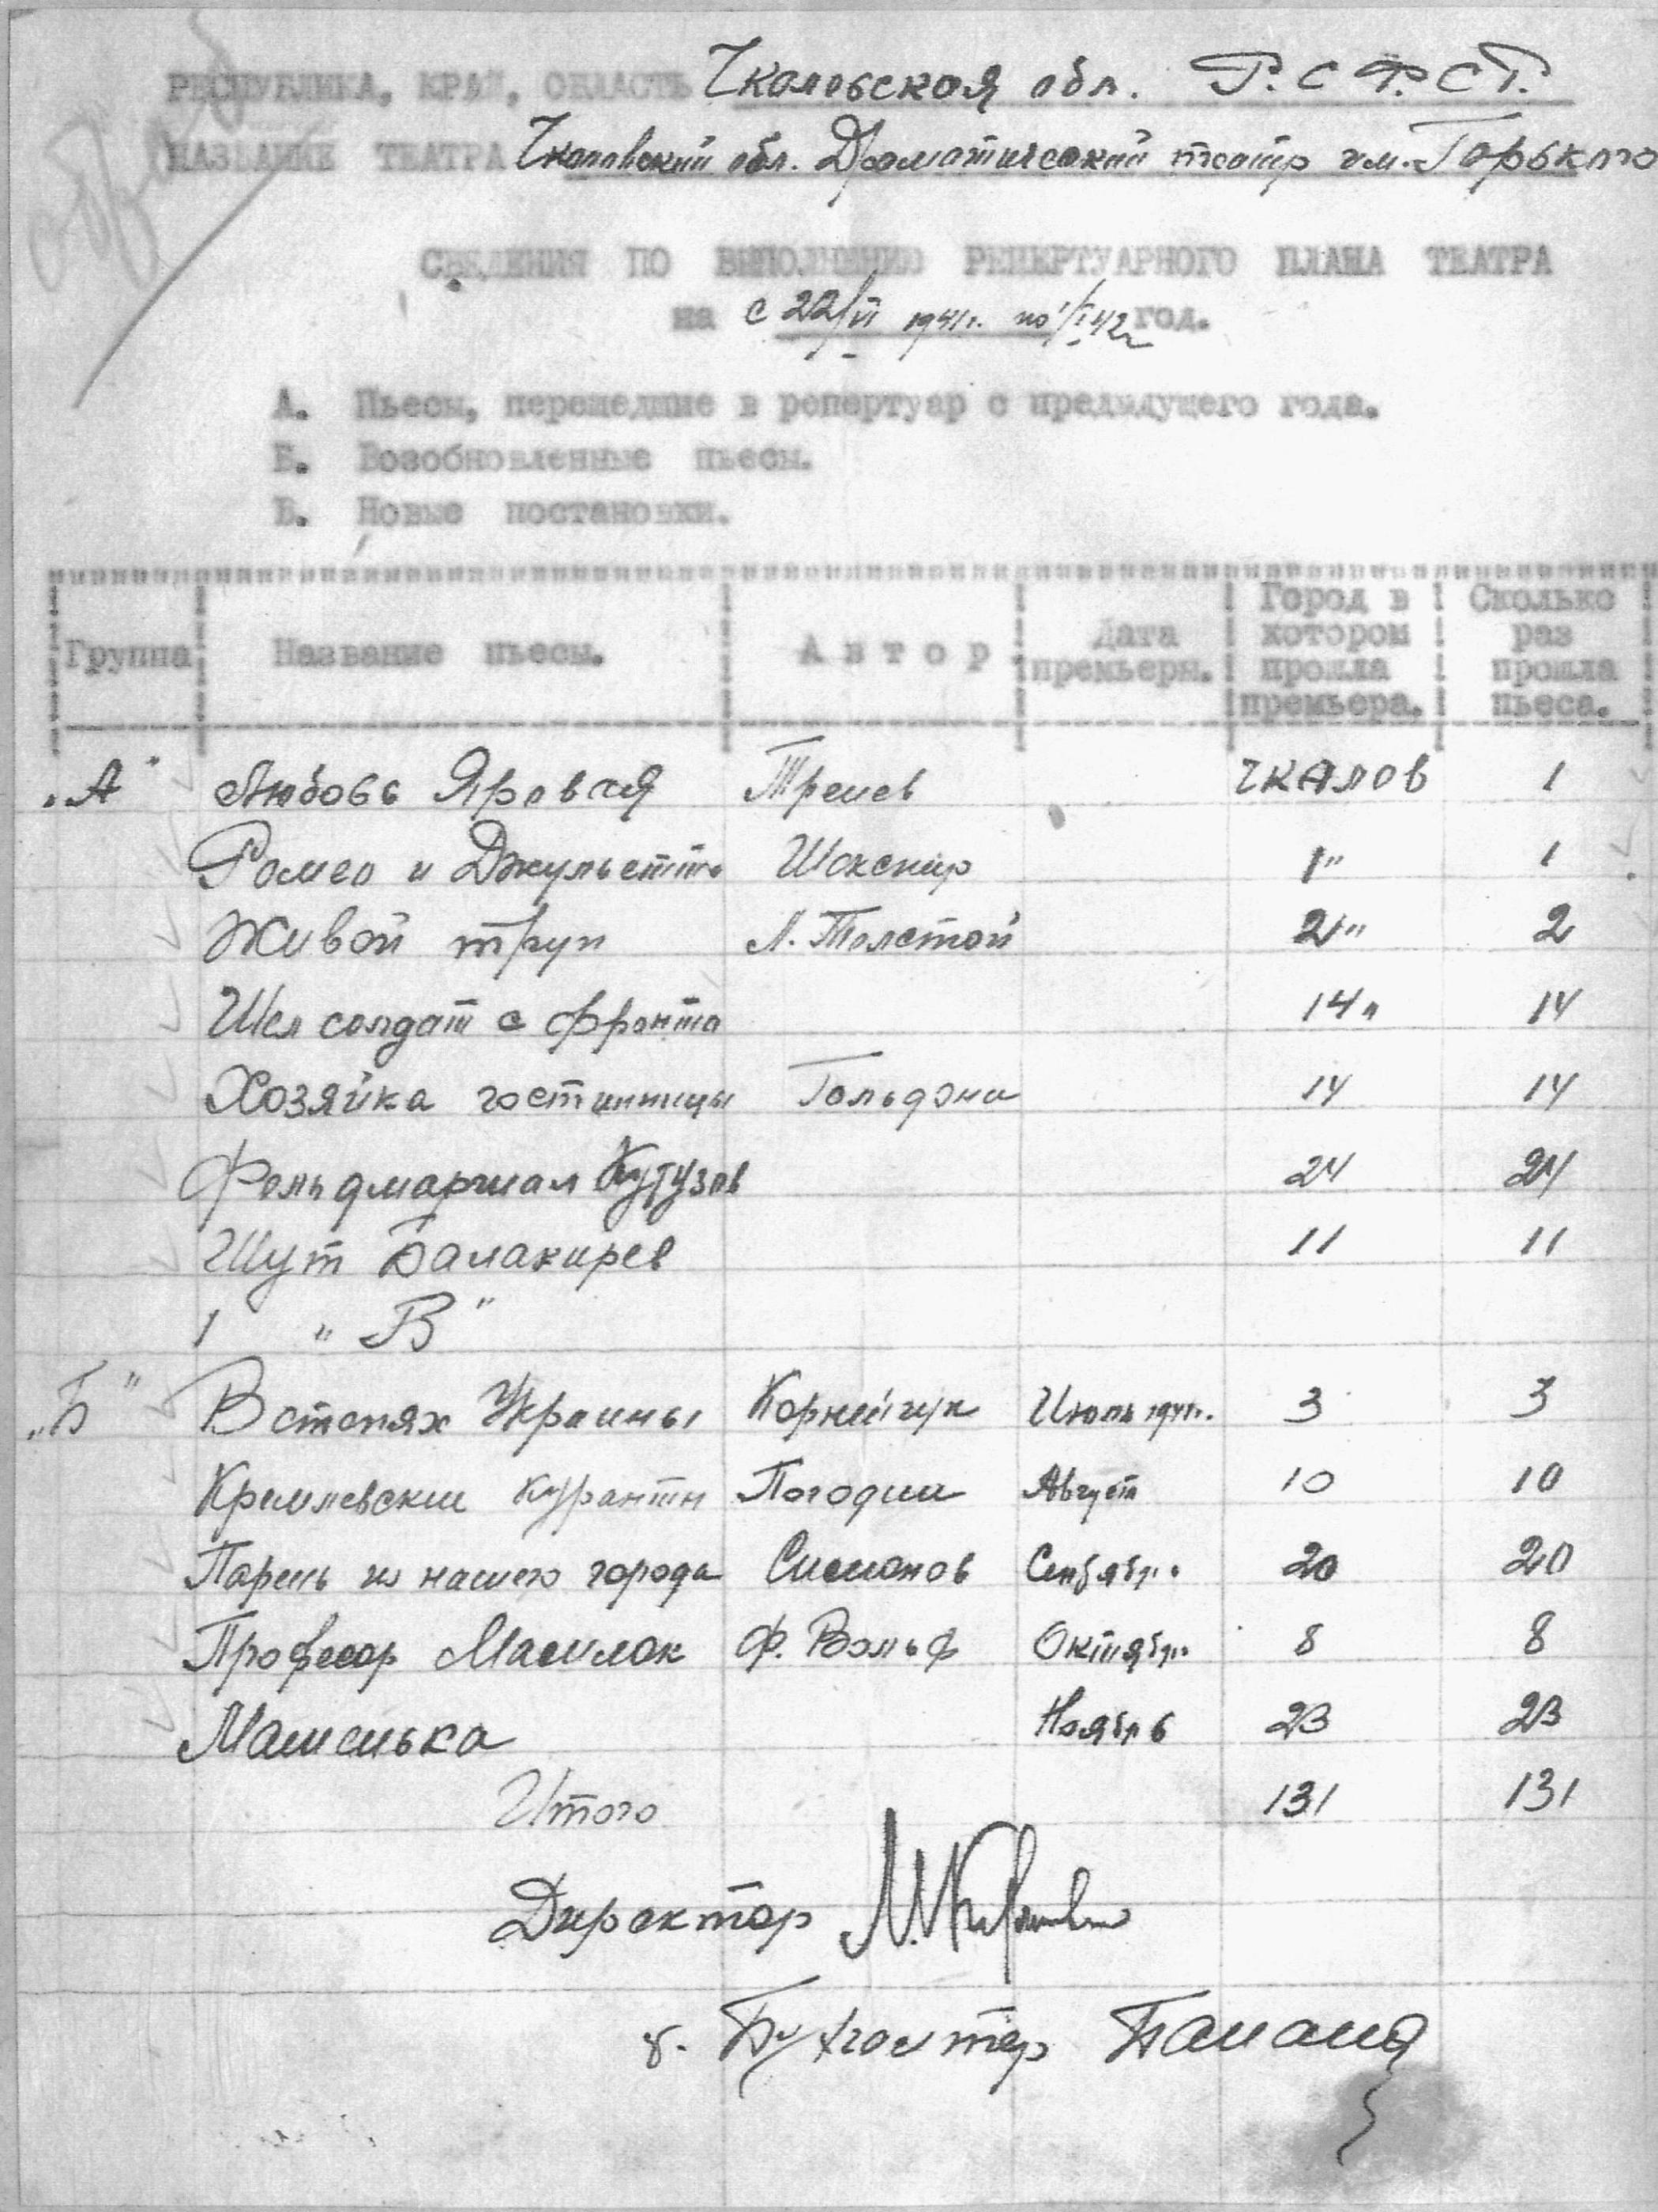 РЕСПУБЛИКА, КРАЙ, ОБЛАСТЬ Чкаловская обл. Р.С.Ф.С.Р.
НАЗВАНИЕ ТЕАТРА Чкаловский обл. Драматический театр им. Горького
СВЕДЕНИЯ ПО ВЫПОЛНЕНИЮ РЕПЕРТУАРНОГО ПЛАНА ТЕАТРА
на с 22/VI 1941г. по 1/I 42г год.
А. Пьесы, перешедшие в репертуар с предыдущего года.
Б. Возобновленные пьесы.
В. Новые постановки.
Группа Название пьесы. Автор Дата премьеры. Город в котором прошла премьера. Сколько раз прошла пьеса.
„А" Любовь Яровая Тренев Чкалов 1
Ромео и Джульетта Шекспир 1" 1
Живой труп Л. Толстой 2" 2
Шел солдат с фронта 14" 14
Хозяйка гостиницы Гольдони 14 14
Фельдмаршал Кутузов 24 24
Шут Балакирев 11 11
1 „В"
„Б" В степях Украины Корнейчук Июль 1941г. 3 3
Кремлевские куранты Погодин Август 10 10
Парень из нашего города Симонов Сентябрь 20 20
Професор Мамлок Ф. Вольф Октябрь 8 8
Машенька Ноябрь 23 23
Итого 131 131
Директор
Бухгалтер